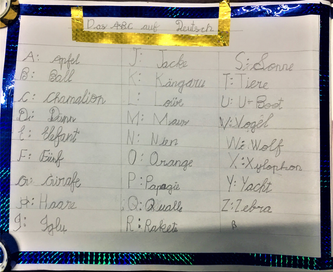 Das ABC auf Deutsch
A: Apfel
B: Ball
C: Chamälion
D: Dinn
E: Elefant
F: Fünf
G: Girafe
H: Haare
I: Iglu
J: Jacke
K: Känguru
L: Löwe
M: Maus
N: Nein
O: Orange
P: Papagie
Q: Qualle
R: Raketi
S: Sonne
T: Tiere
U: U-Boot
V: Vogel
W: Wolf
X: Xylophon
Y: Yacht
Z: Zebra
ß